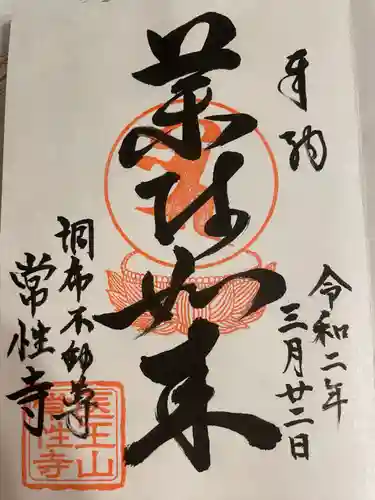 奉納
令和二年
三月廿二日
薬师如来
調布不動尊
常性寺
医王山
常性寺